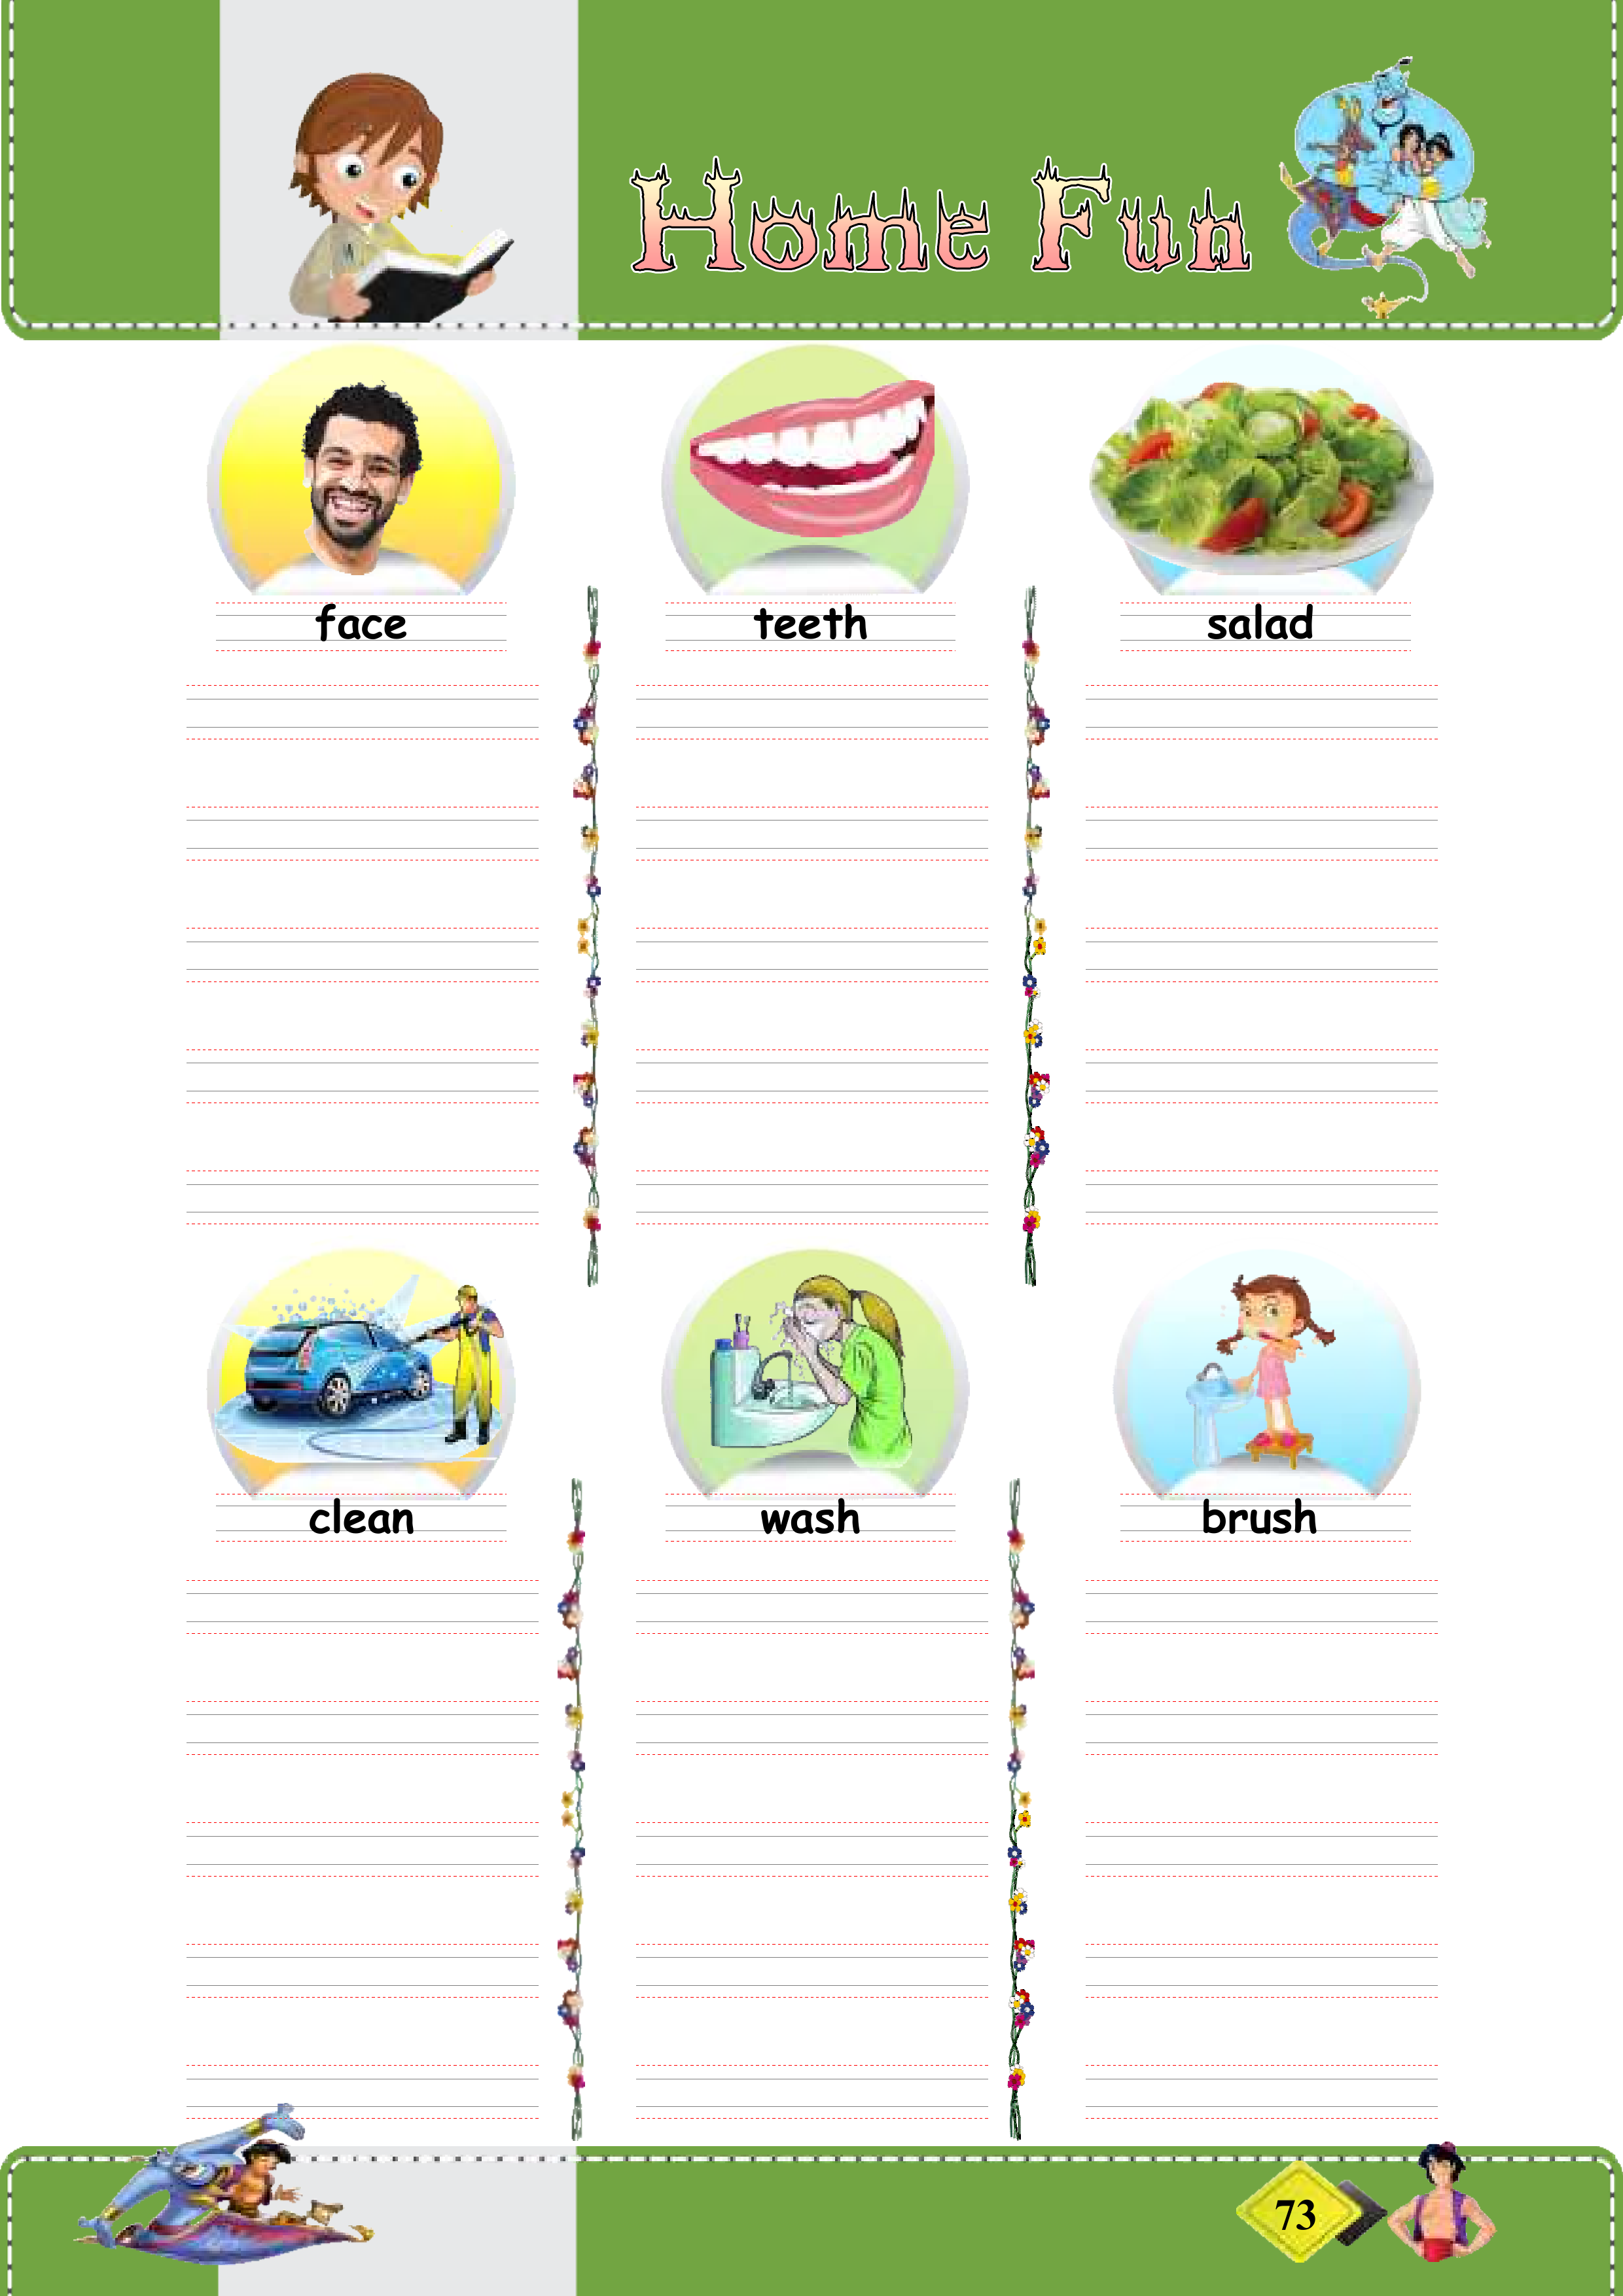 Home Fun
face teeth salad
clean wash brush
73